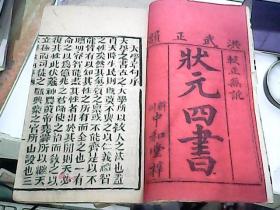 洪武正韻
校正無訛
狀元四書
中和堂梓
大學章句序
大學之書古之大學所以教人之法也蓋
自天降生民則既莫不與之以仁義禮智
之性矣然其氣質之稟或不能齊是以不
能皆有以知其性之所有而全之也一有
聰明睿智能盡其性者出於其間則天必
命之以為億兆之君師使之治而教之以
復其性此伏羲神農黃帝堯舜所以繼天
立極而司徒之職典樂之官所由設也三